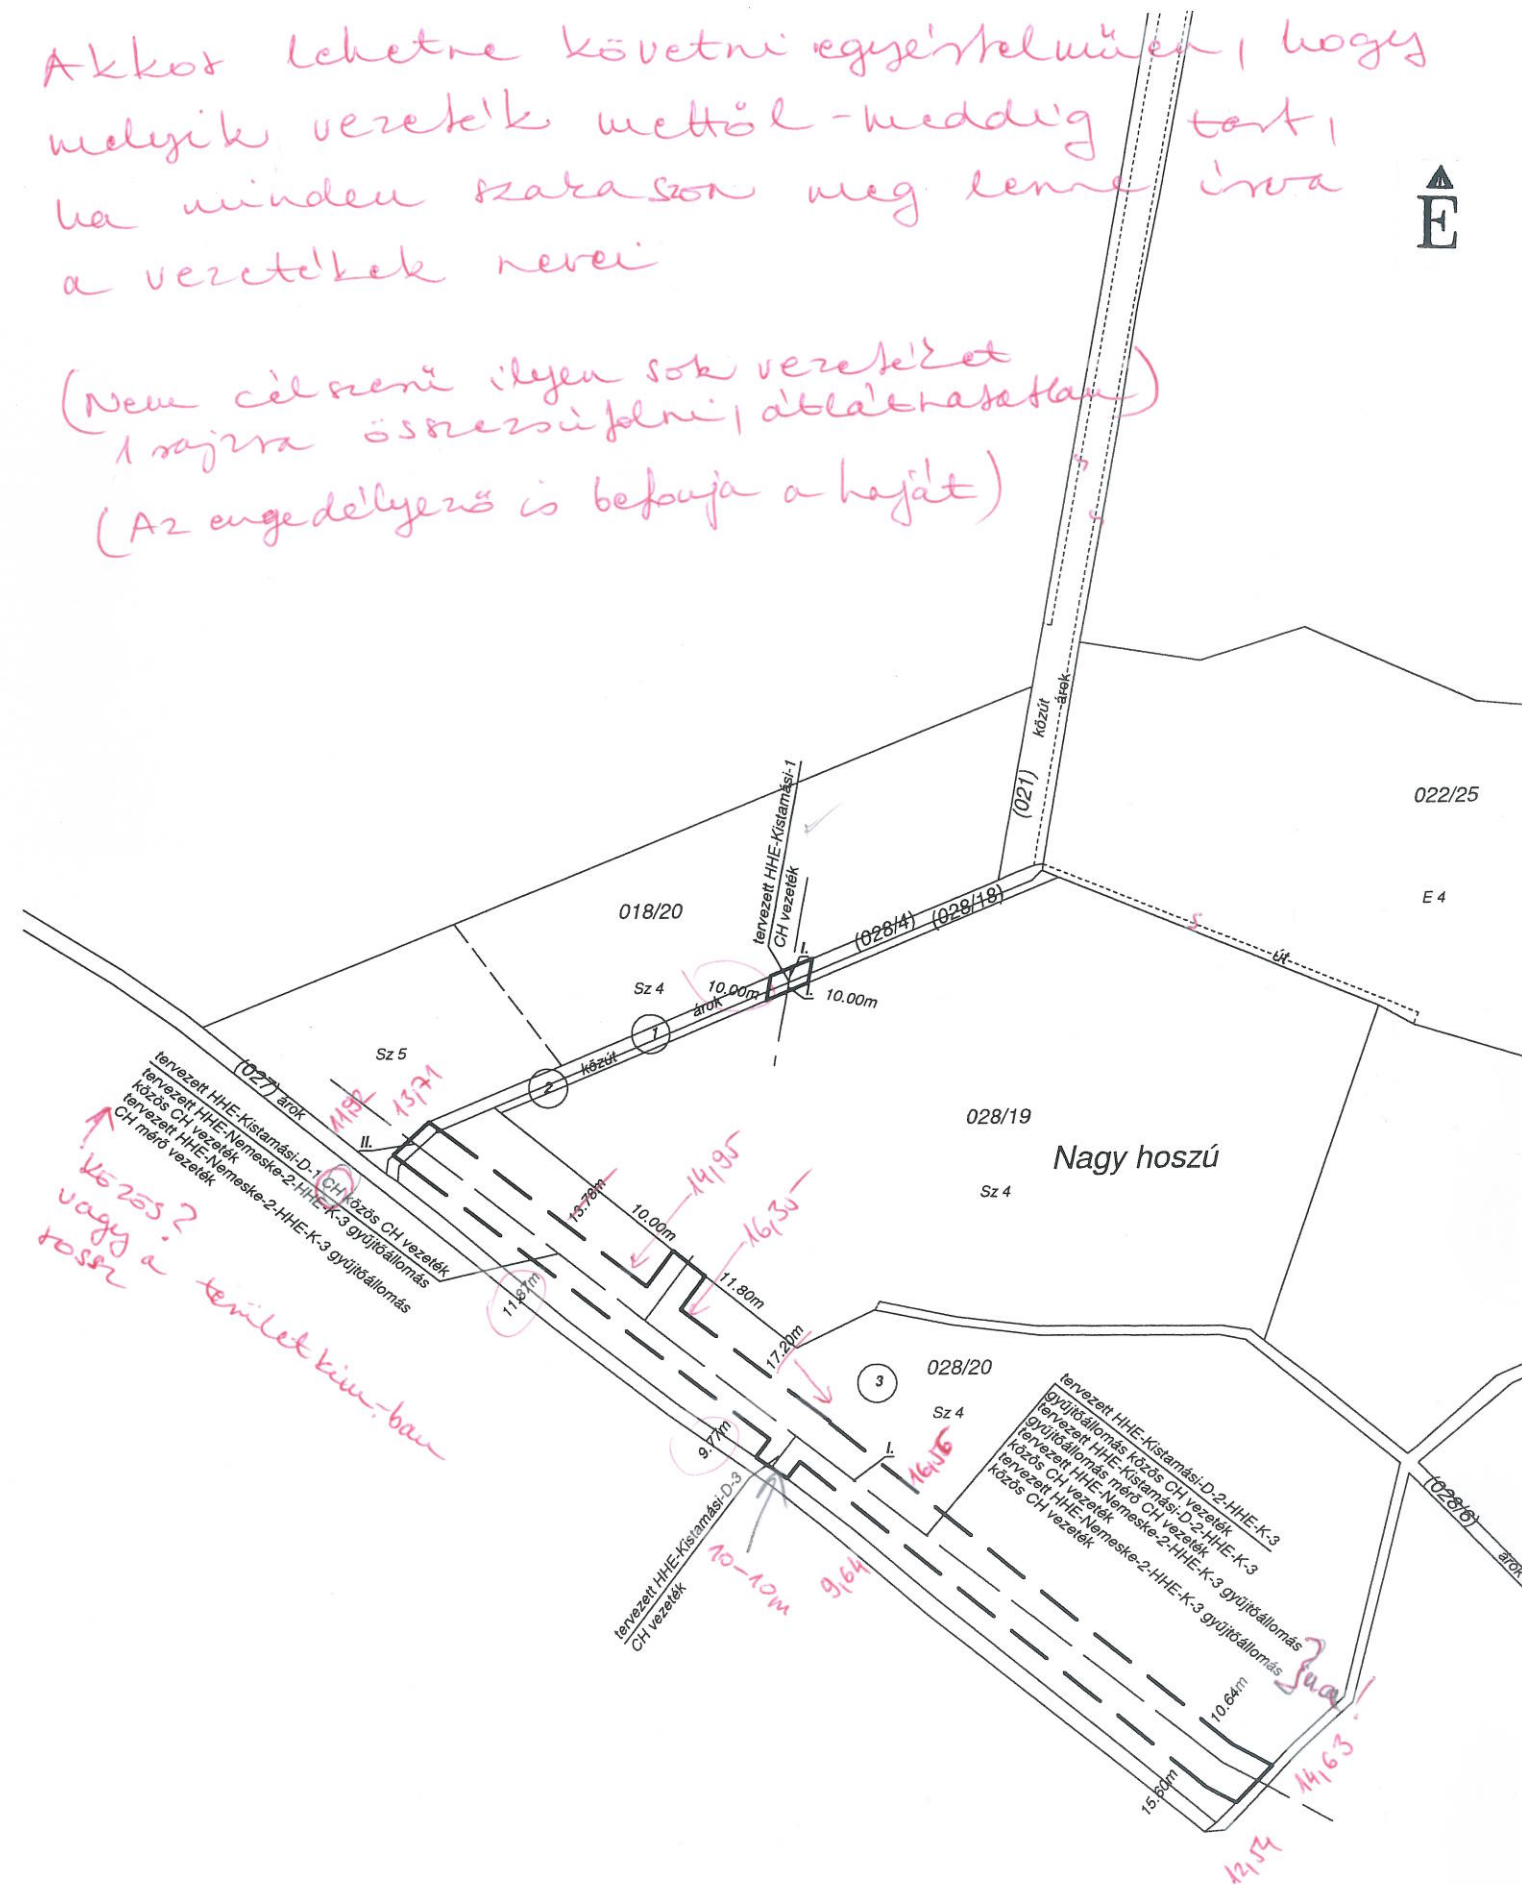 Akkor lehetne követni egyértelműen, hogy
melyik vezeték mettől-meddig tart,
ha minden szakaszon meg lenne írva
a vezetékek nevei
É
(Nem célszerű ilyen sok vezetéket
1 rajzra összezsúfolni, átláthatatlan)
(Az engedélyező is befonja a haját)
s
s
árok
közút
(021)
022/25
E 4
tervezett HHE-Kistamási-1
CH vezeték
018/20
(028/4)
(028/18)
s
út
I.
Sz 4
10.00m
I.
10.00m
árok
1
közút
2
Sz 5
(027) árok
11,92
13,71
II.
028/19
Nagy hoszú
Sz 4
tervezett HHE-Kistamási-D-1 CH közös CH vezeték
tervezett HHE-Nemeske-2-HHE-K-3 gyűjtőállomás
közös CH vezeték
tervezett HHE-Nemeske-2-HHE-K-3 gyűjtőállomás
CH mérő vezeték
közös?
vagy a
rossz
területkim.-ban
13.78m
14,95
10.00m
16,35
11.80m
11.87m
17.20m
3
028/20
Sz 4
I.
16,56
9.77m
tervezett HHE-Kistamási-D-3
CH vezeték
10-10m
9,64
tervezett HHE-Kistamási-D-2-HHE-K-3
gyűjtőállomás közös CH vezeték
tervezett HHE-Kistamási-D-2-HHE-K-3
gyűjtőállomás mérő CH vezeték
tervezett HHE-Nemeske-2-HHE-K-3 gyűjtőállomás
közös CH vezeték
tervezett HHE-Nemeske-2-HHE-K-3 gyűjtőállomás
közös CH vezeték
ua!
(028/6)
árok
10.64m
14,63
15.60m
12,54